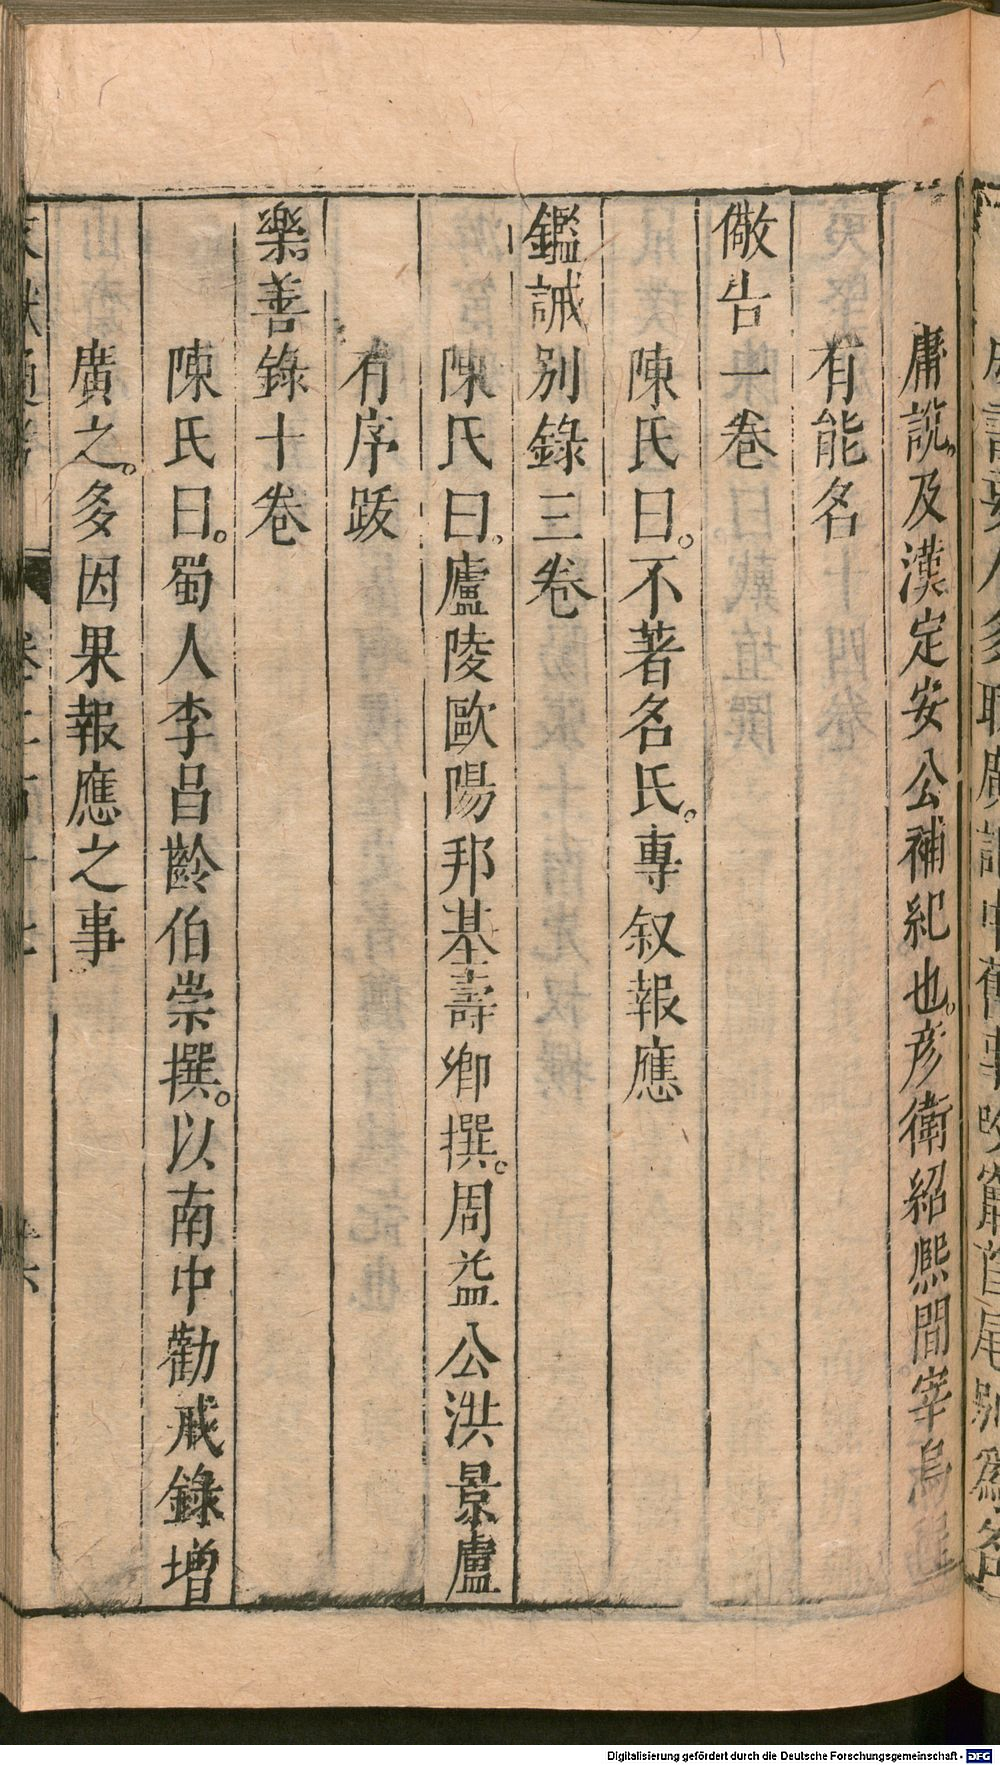 庸說。及漢定安公補紀也。彥衛紹熙間宰烏程
有能名
儆告一卷
陳氏曰。不著名氏。專叙報應
鑑誡別錄三卷
陳氏曰。廬陵歐陽邦基壽卿撰。周益公洪景盧
有序跋
樂善錄十卷
陳氏曰。蜀人李昌齡伯崇撰。以南中勸戒錄增
廣之。多因果報應之事
Digitalisierung gefördert durch die Deutsche Forschungsgemeinschaft - DFG